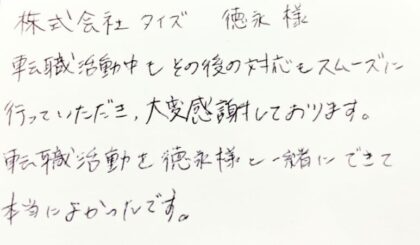 株式会社タイズ 徳永様
転職活動中もその後の対応もスムーズに
行っていただき、大変感謝しております。
転職活動を徳永様と一緒にできて
本当によかったです。